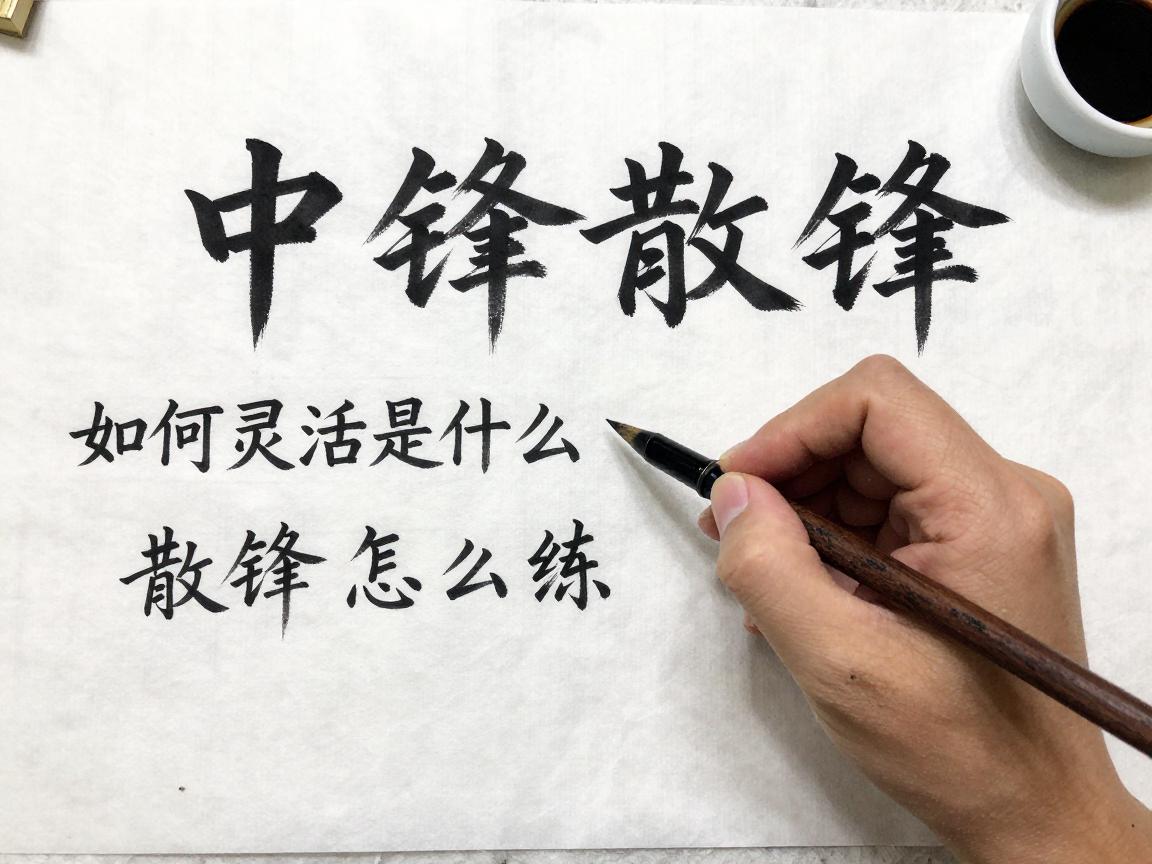 中锋散锋
如何灵活是什么
散锋怎么练